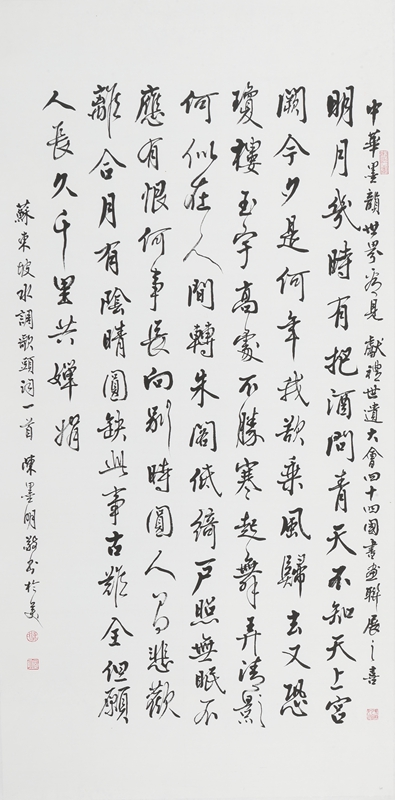 中華墨韻世界 獻禮世遺大會四十四國書畫聯展之喜
明月幾時有把酒問青天不知天上宮
闕今夕是何年我欲乘風歸去又恐
瓊樓玉宇高處不勝寒起舞弄清影
何似在人間轉朱閣低綺戶照無眠不
應有恨何事長向別時圓人有悲歡
離合月有陰晴圓缺此事古難全但願
人長久千里共嬋娟
蘇東坡水調歌頭詞一首 陳墨明敬書於美